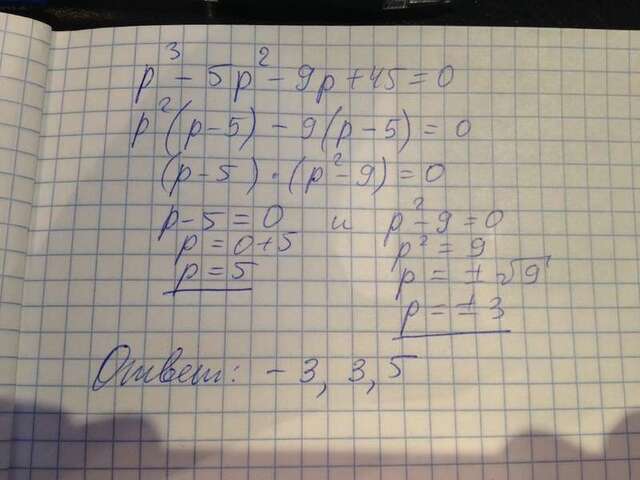 p³ - 5p² - 9p + 45 = 0
p²(p - 5) - 9(p - 5) = 0
(p - 5) · (p² - 9) = 0
p - 5 = 0 и p² - 9 = 0
p = 0 + 5 p² = 9
p = 5 p = ± √9
p = ± 3
Ответ: - 3, 3, 5